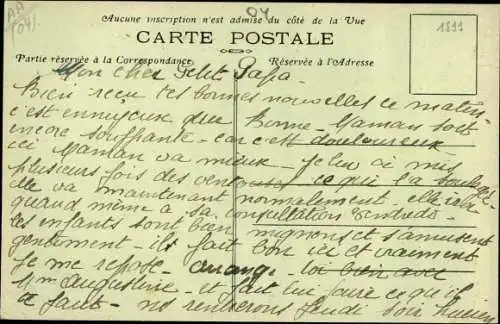 AA
04
(04).
1899
Aucune inscription n'est admise du côté de la Vue
CARTE POSTALE
Partie réservée à la Correspondance
Réservée à l'Adresse
Mon cher Petit Papa.
Bien reçu tes bonnes nouvelles ce matin.
c'est ennuyeux que Bonne-Maman soit
encore souffrante - car c'est douloureux
ici Maman va mieux - je lui ai mis
plusieurs fois des ventouses ce qui l'a soulagée
elle va maintenant normalement. elle ira
quand même à sa consultation vendredi.
les enfants sont bien mignons et s'amusent
gentiment - ils fait bon ici et vraiment
je me repose - arrange toi bien avec
Mme Augustine - et fait lui faire ce qu'il
faut - ns rentrerons jeudi soir